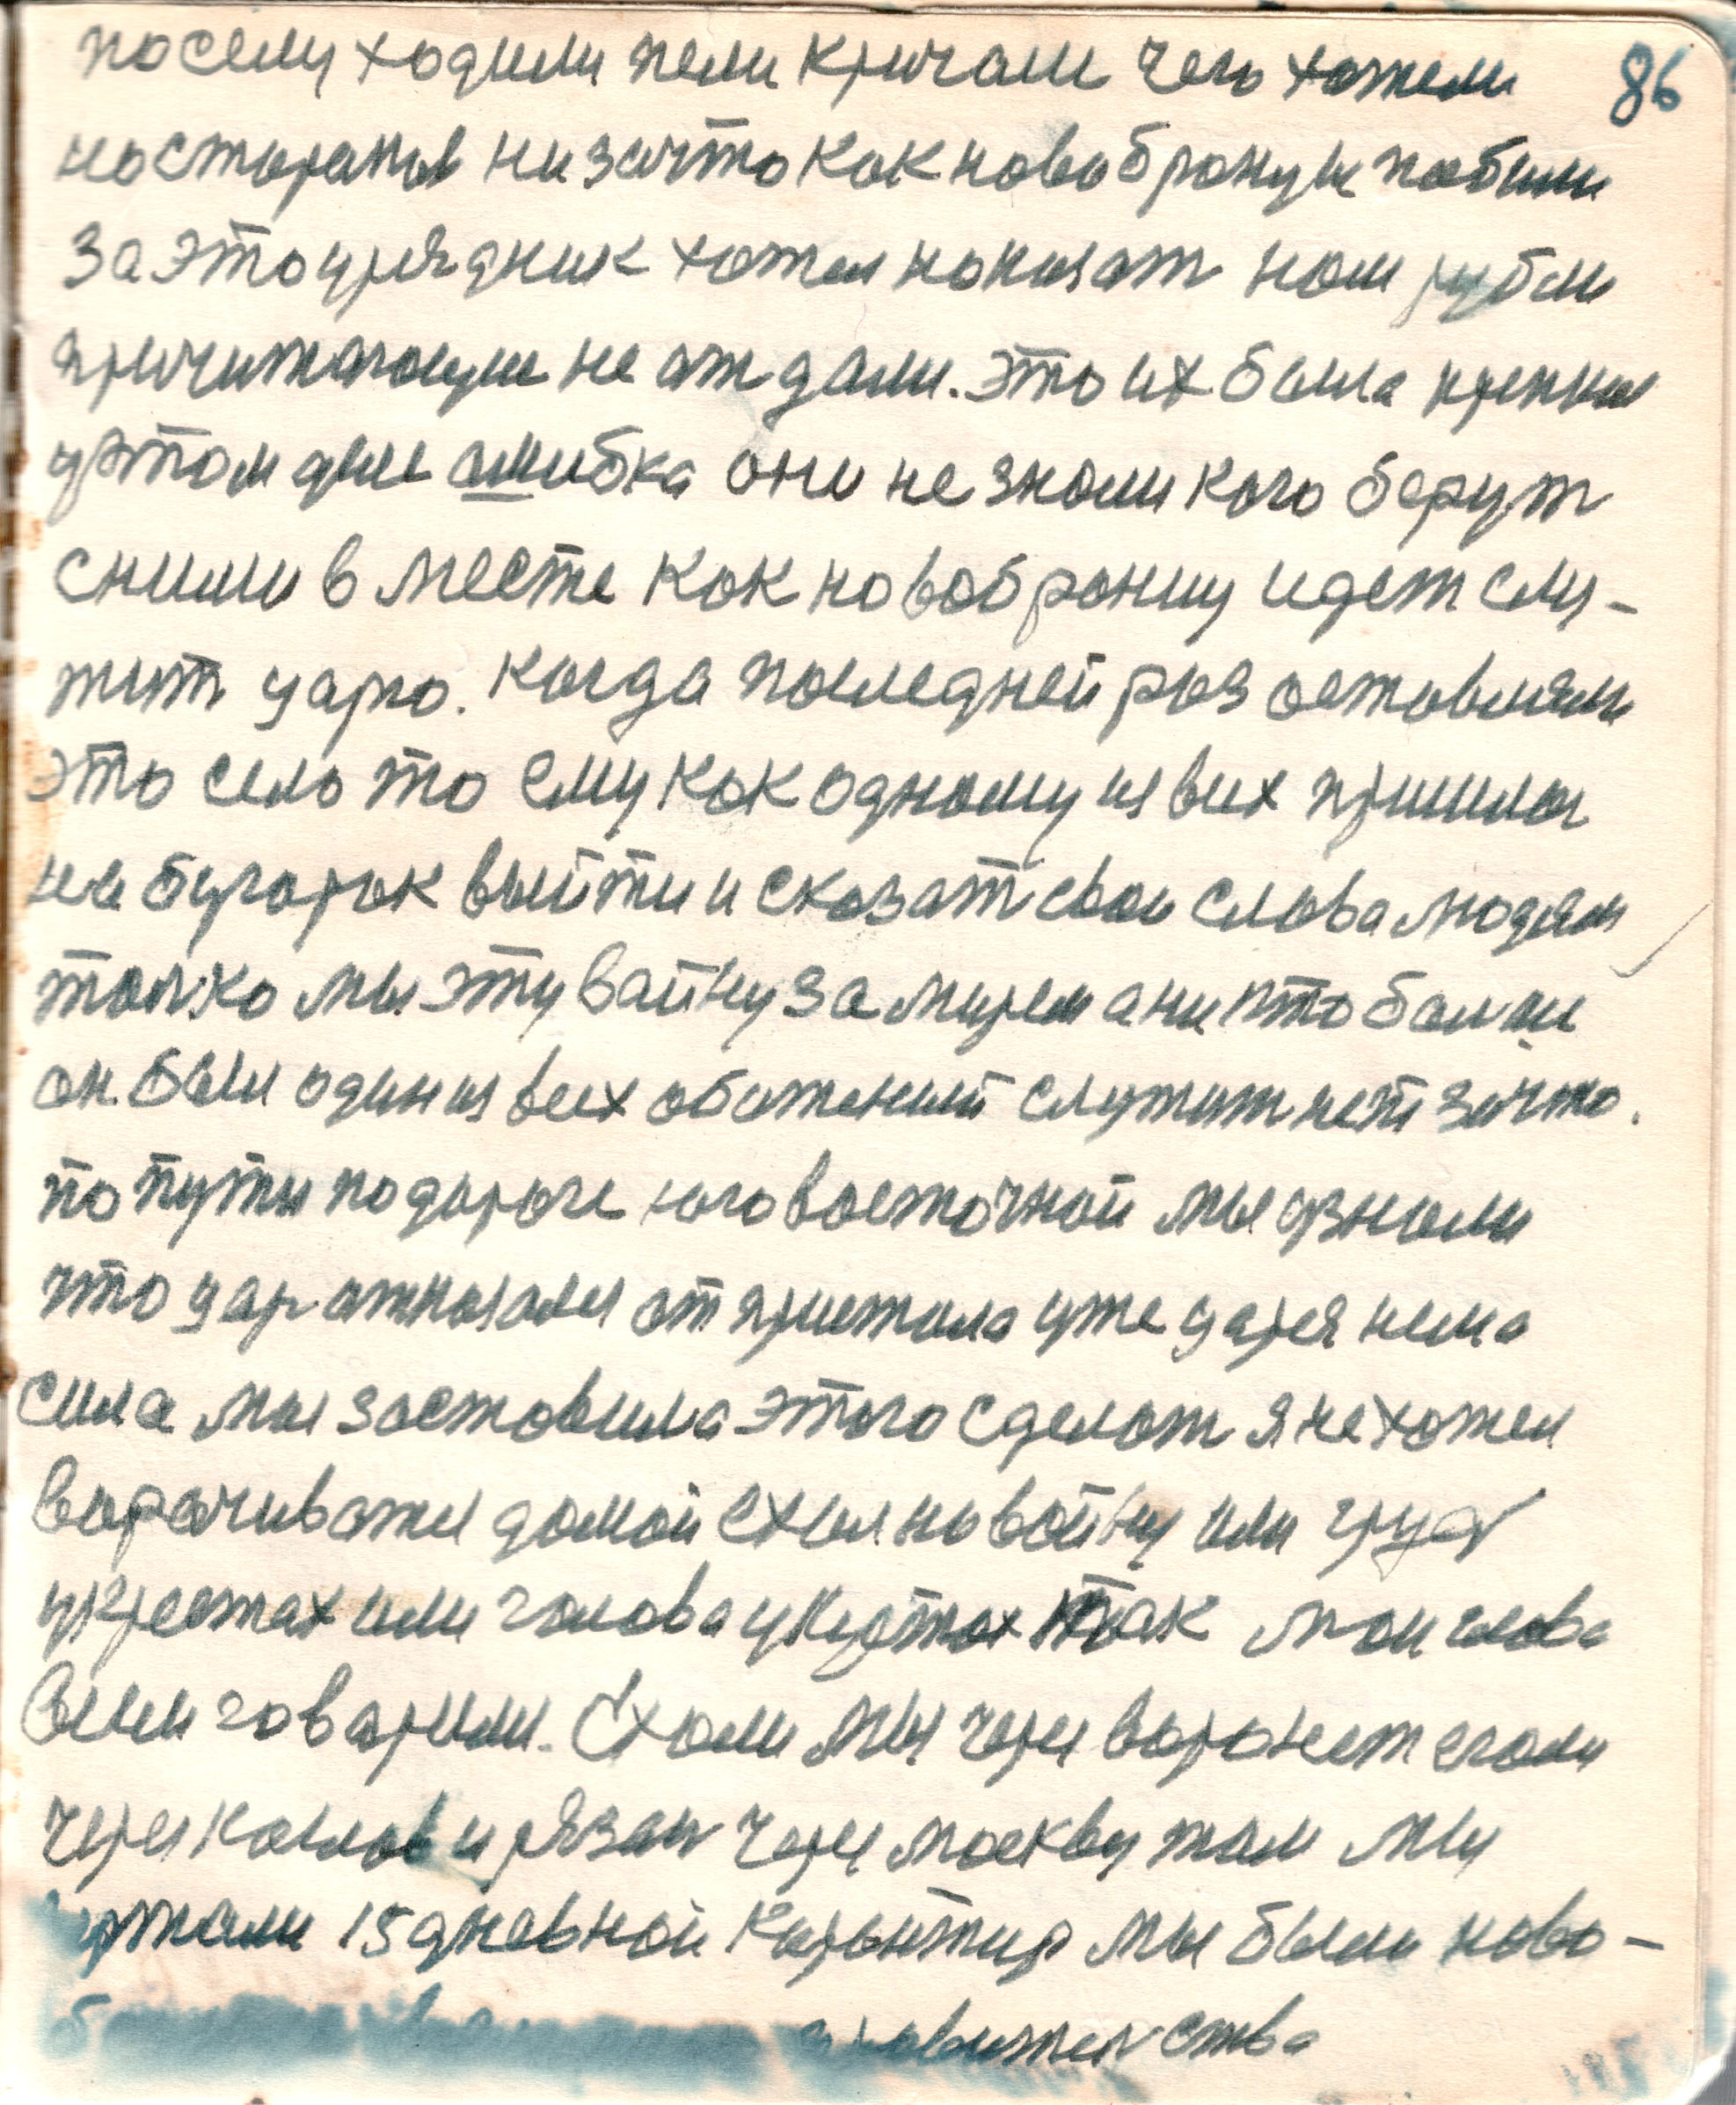 по селу ходили пели кричали чего хотели
86
настаранов низачто как новобранци побили
за это урядник хотел наказат нам рубли
причитающие не отдали. это их была крепкая
у этом деле ошибка они не знали кого берут
сними в месте как новобранцу идет слу-
жит царю. когда последней раз оставляли
это село то ему как одному из всех пришлос
на бугорок выйти и сказат свои слова людям
толко мы эту вайну замирем а никто болше
он был один из всех обиженый служит нет зачто.
по пути по дороге юго восточной мы узнали
что цар атказался от пристола уже царя нема
сила мы заставила этого сделат я не хотел
ворачиватся домой ехал на войну или груд
у крестах или голова у кустах так мои слова
всем говарили. Ехали мы через Воронеж ехали
через Козлов и рязан через москву там мы
держали 15 дневной карынтир мы были ново-
правителства